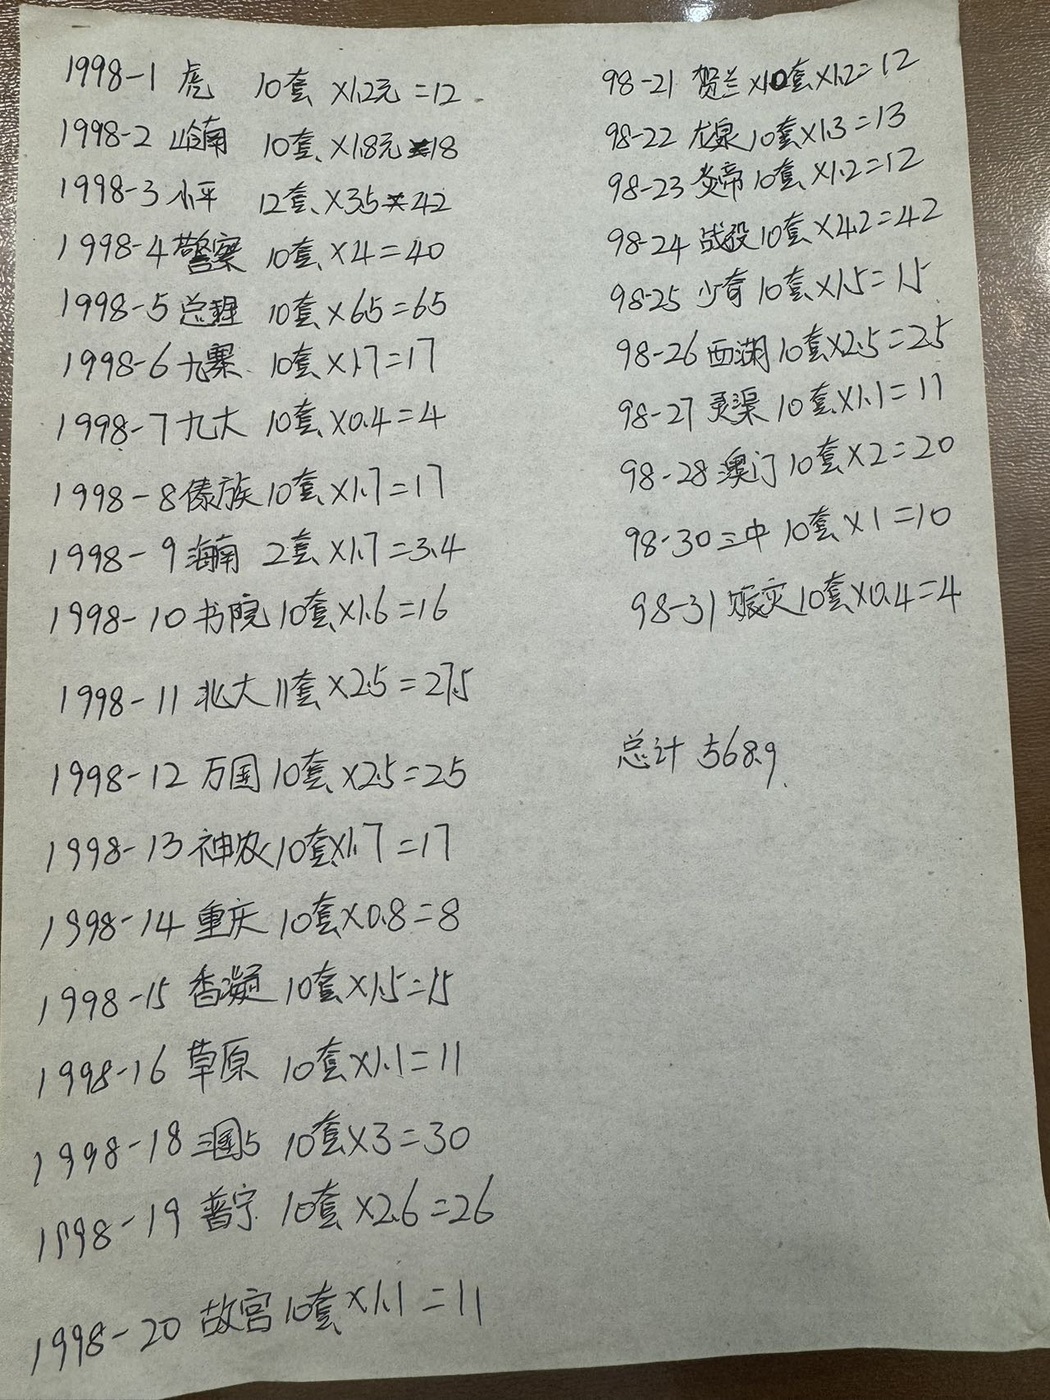 1998-1 虎 10套 ×1.2元=12
1998-2 岭南 10套 ×1.8元=18
1998-3 小平 12套 ×3.5=42
1998-4 警察 10套 ×4=40
1998-5 总理 10套 ×6.5=65
1998-6 九寨 10套 ×1.7=17
1998-7 九大 10套 ×0.4=4
1998-8 傣族 10套 ×1.7=17
1998-9 海南 2套 ×1.7=3.4
1998-10 书院 10套 ×1.6=16
1998-11 北大 11套 ×2.5=27.5
1998-12 万国 10套 ×2.5=25
1998-13 神农 10套 ×1.7=17
1998-14 重庆 10套 ×0.8=8
1998-15 香凝 10套 ×1.5=15
1998-16 草原 10套 ×1.1=11
1998-18 三国5 10套 ×3=30
1998-19 普宁 10套 ×2.6=26
1998-20 故宫 10套 ×1.1=11
98-21 贺兰 ×10套 ×1.2=12
98-22 龙泉 10套 ×1.3=13
98-23 炎帝 10套 ×1.2=12
98-24 战役 10套 ×4.2=42
98-25 少奇 10套 ×1.5=15
98-26 西湖 10套 ×2.5=25
98-27 灵渠 10套 ×1.1=11
98-28 澳门 10套 ×2=20
98-30 三中 10套 ×1=10
98-31 赈灾 10套 ×0.4=4
总计 568.9